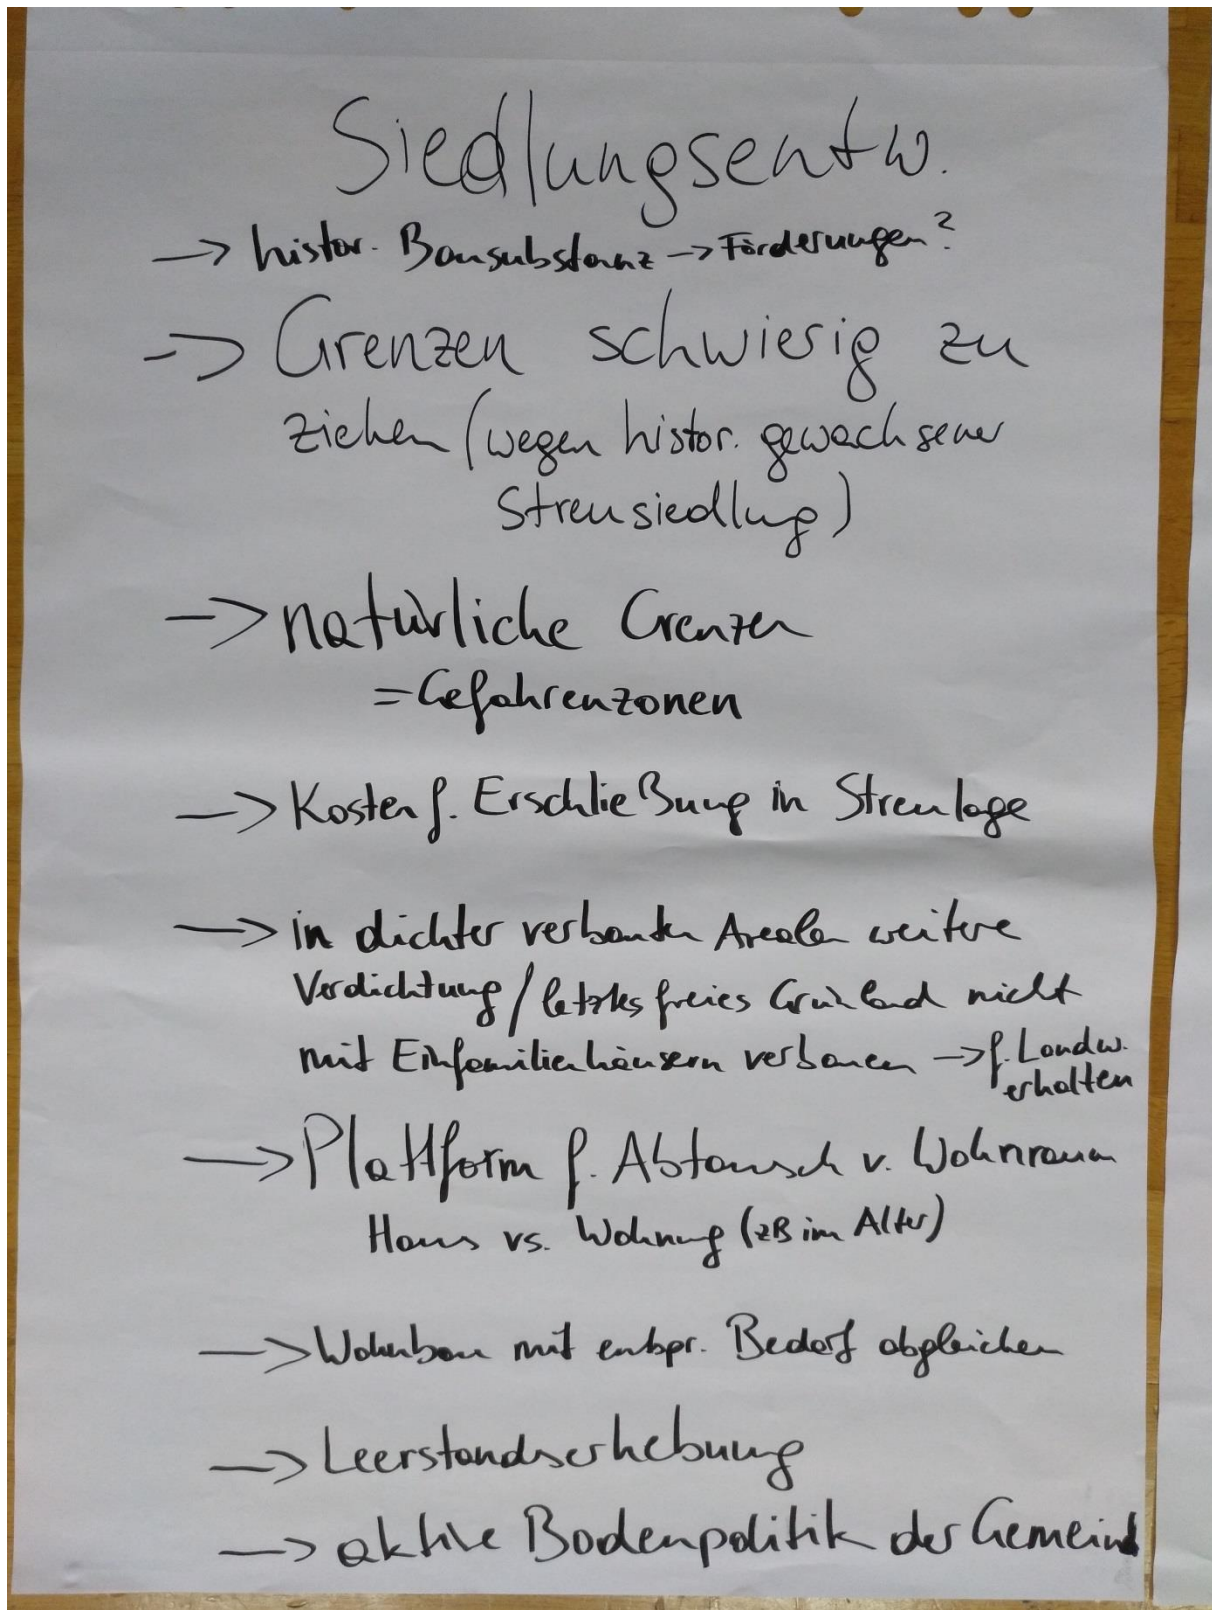 Siedlungsentw.
-> histor. Bausubstanz -> Förderungen?
-> Grenzen schwierig zu
ziehen (wegen histor. gewachsener
Streusiedlung)
-> natürliche Grenzen
= Gefahrenzonen
-> Kosten f. Erschließung in Streulage
-> in dichter verbauten Arealen weitere
Verdichtung / letztes freies Grünland nicht
mit Einfamilienhäusern verbauen -> f. Landw.
erhalten
-> Plattform f. Abtausch v. Wohnraum
Haus vs. Wohnung (zB im Alter)
-> Wohnbau mit entspr. Bedarf abgleichen
-> Leerstandserhebung
-> aktive Bodenpolitik der Gemeind